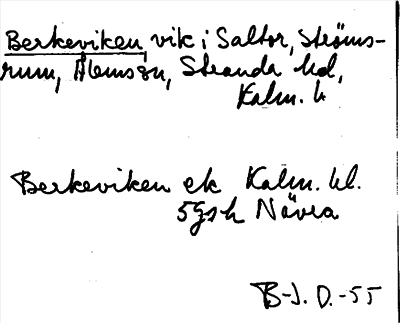 Berkeviken, vik i Saltor, Ströms-
rum, Ålems sn, Stranda hd,
Kalm. l.
Berkeviken ek Kalm. bl.
5g3h Nävra
B-J. D.-55